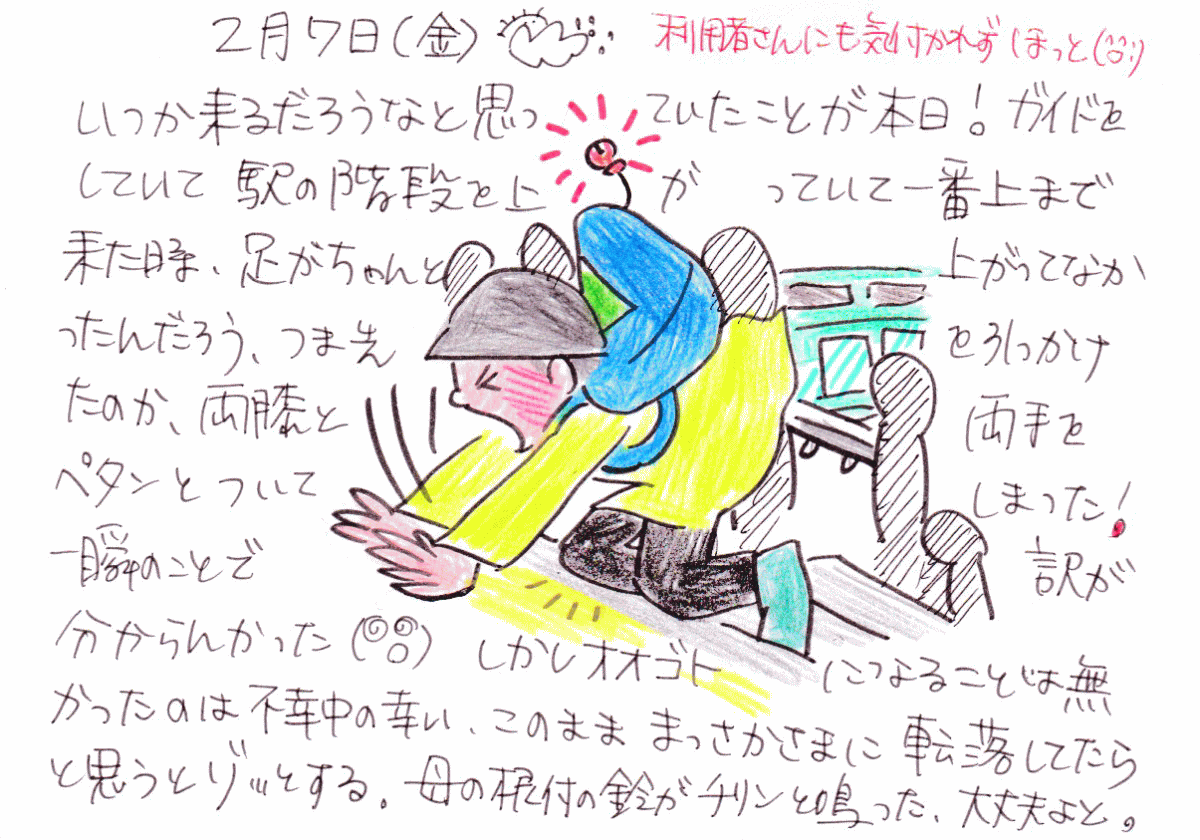 2月7日(金)
利用者さんにも気付かれずほっと
いつか来るだろうなと思っていたことが本日！ガイドを
していて駅の階段を上がっていて一番上まで
来た時、足がちゃんと上がってなか
ったんだろう、つま先をひっかけ
たのか、両膝と両手を
ペタンとついてしまった！
一瞬のことで訳が
分からんかった しかしオオゴトになることは無
かったのは不幸中の幸い、このまままっさかさまに転落してたら
と思うとゾッとする。母の根付の鈴がチリンと鳴った、大丈夫よと。